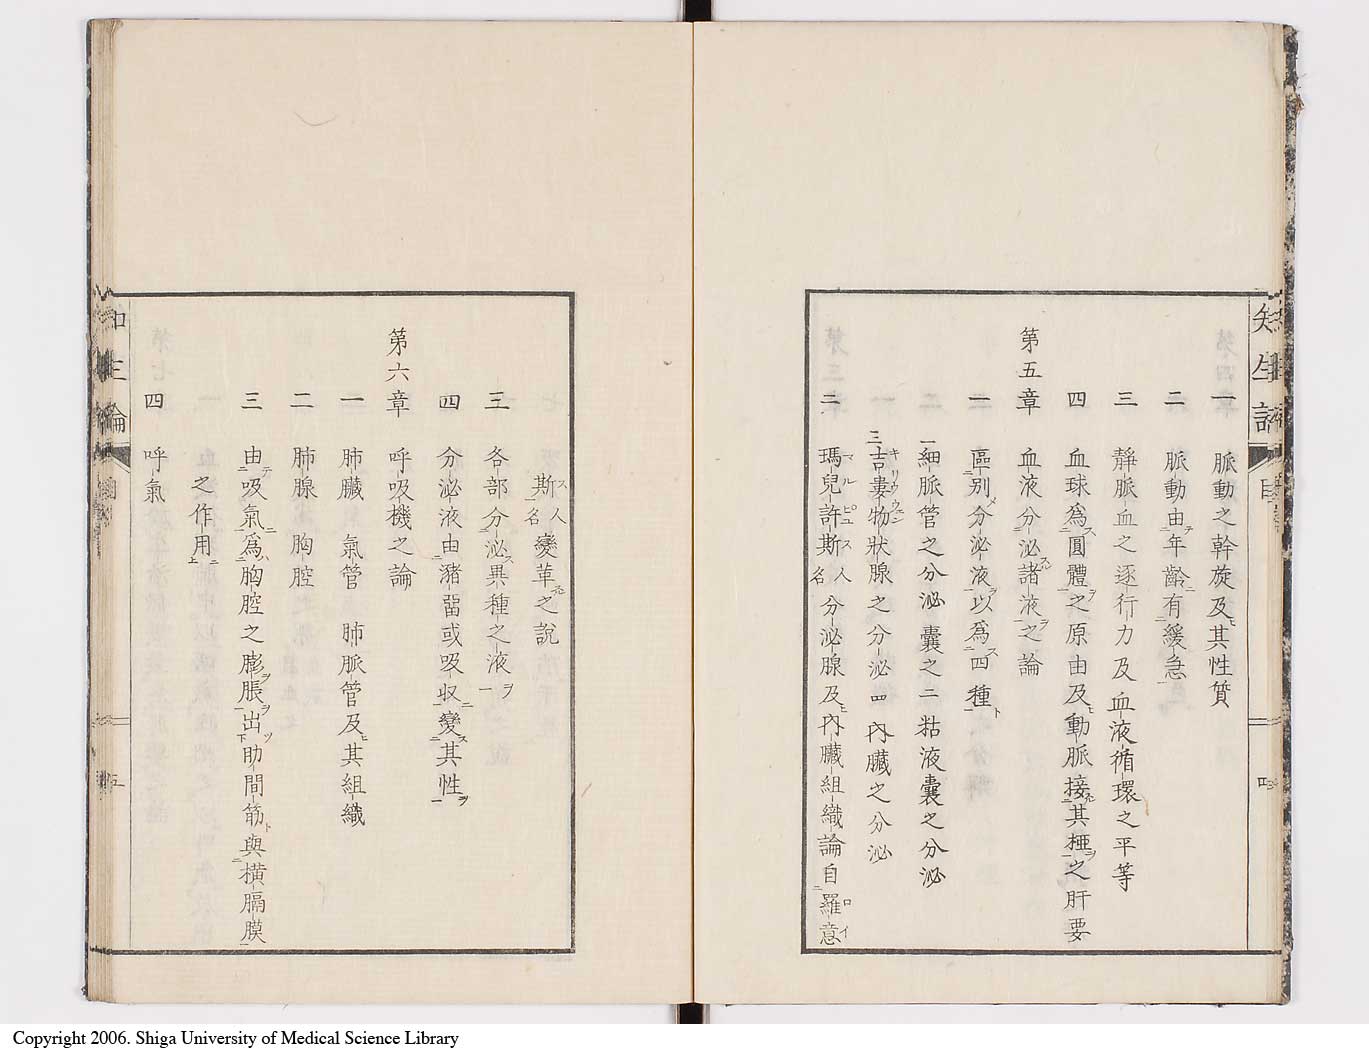 知生論
目
四
一 脈動之幹旋及其性質
二 脈動由年齡有緩急
三 靜脈血之逐行力及血液循環之平等
四 血球爲圓體之原由及動脈接其極之肝要
第五章 血液分泌諸液之論
一 區別分泌液以爲四種
一 細脈管之分泌囊之 二 粘液囊之分泌
三 吉婁物狀腺之分泌 四 內臟之分泌
二 瑪兒許斯人名分泌腺及內臟組織論自羅意
斯人名變革之說
三 各部分泌異種之液
四 分泌液由瀦畱或吸収變其性
第六章 呼吸機之論
一 肺臟氣管肺脈管及其組織
二 肺腺胸腔
三 由吸氣爲胸腔之膨脹出肋間筋與橫膈膜
之作用
四 呼氣
Copyright 2006. Shiga University of Medical Science Library